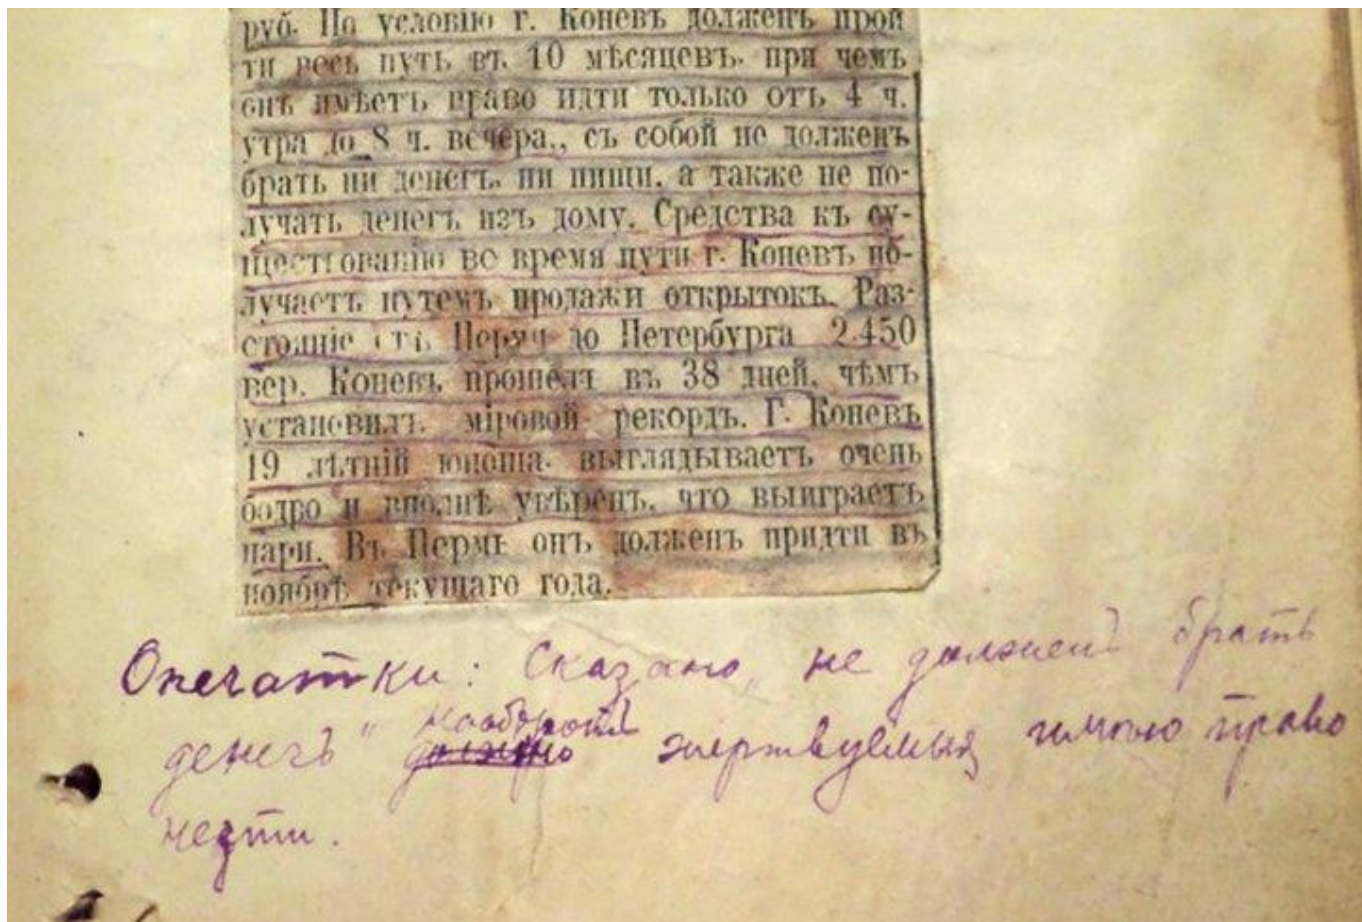 руб. По условію г. Коневъ долженъ прой
ти весь путь въ 10 мѣсяцевъ. при чемъ
онъ имѣетъ право идти только отъ 4 ч.
утра до 8 ч. вечера., съ собой не долженъ
брать ни денегъ, ни пищи, а также не по-
лучать денегъ изъ дому. Средства къ су-
ществованію во время пути г. Коневъ по-
лучаетъ путемъ продажи открытокъ. Раз-
стояніе отъ Перми до Петербурга 2.450
вер. Коневъ прошелъ въ 38 дней, чѣмъ
установилъ міровой рекордъ. Г. Коневъ
19 лѣтній юноша. выглядываетъ очень
бодро и вполнѣ увѣренъ, что выиграетъ
пари. Въ Пермь онъ долженъ придти въ
ноябрѣ текущаго года.
Опечатки: Сказано „не долженъ брать
денегъ" наоборотъ жертвуемыя имѣю право